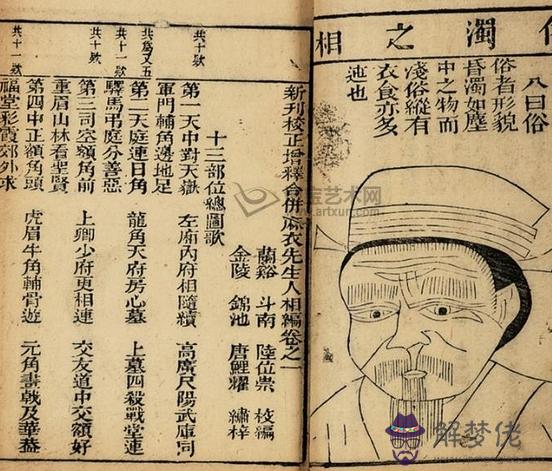 濁之相
八曰俗
俗者形貌
昏濁如塵
中之物而
淺俗縱有
衣食亦多
迍也
新刊校正增釋合併麻衣先生人相編卷之一
蘭谿 斗南 陸位崇 校編
金陵 錦池 唐鯉耀 繡梓
十三部位總圖歌
共十欵
第一天中對天嶽 左廂內府相隨續 高廣尺陽武庫同
軍門輔角邊地足
共為又五
共十一欵
第二天庭連日角 龍角天府房心墓 上墓四殺戰堂連
驛馬弔庭分善惡
共十欵
第三司空額角前 上卿少府更相連 交友道中交額好
重眉山林看聖賢
共十一欵
第四中正額角頭 虎眉牛角輔骨遊 元角畫戟及華蓋
福堂彩霞郊外求
宝艺术网
www.artxun.com
解梦佬